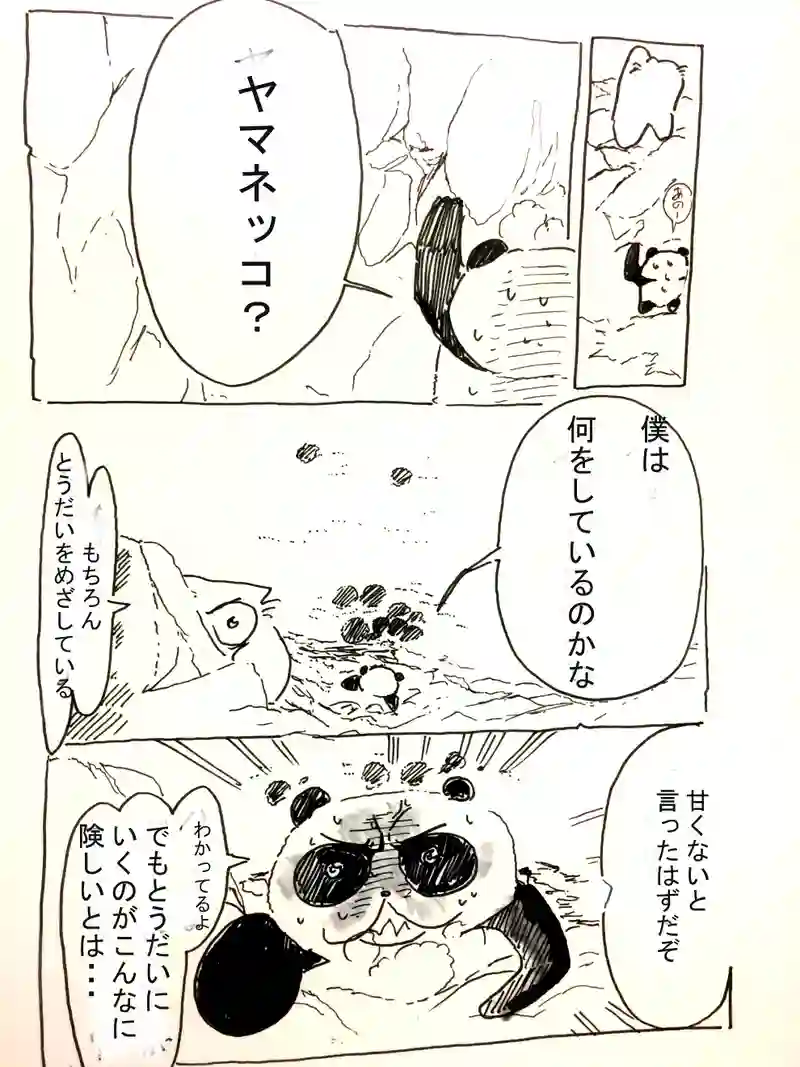 あのー
ヤマネッコ?
僕は
何をしているのかな
もちろん
とうだいをめざしている
甘くないと
言ったはずだぞ
わかってるよ
でもとうだいに
いくのがこんなに
険しいとは・・・